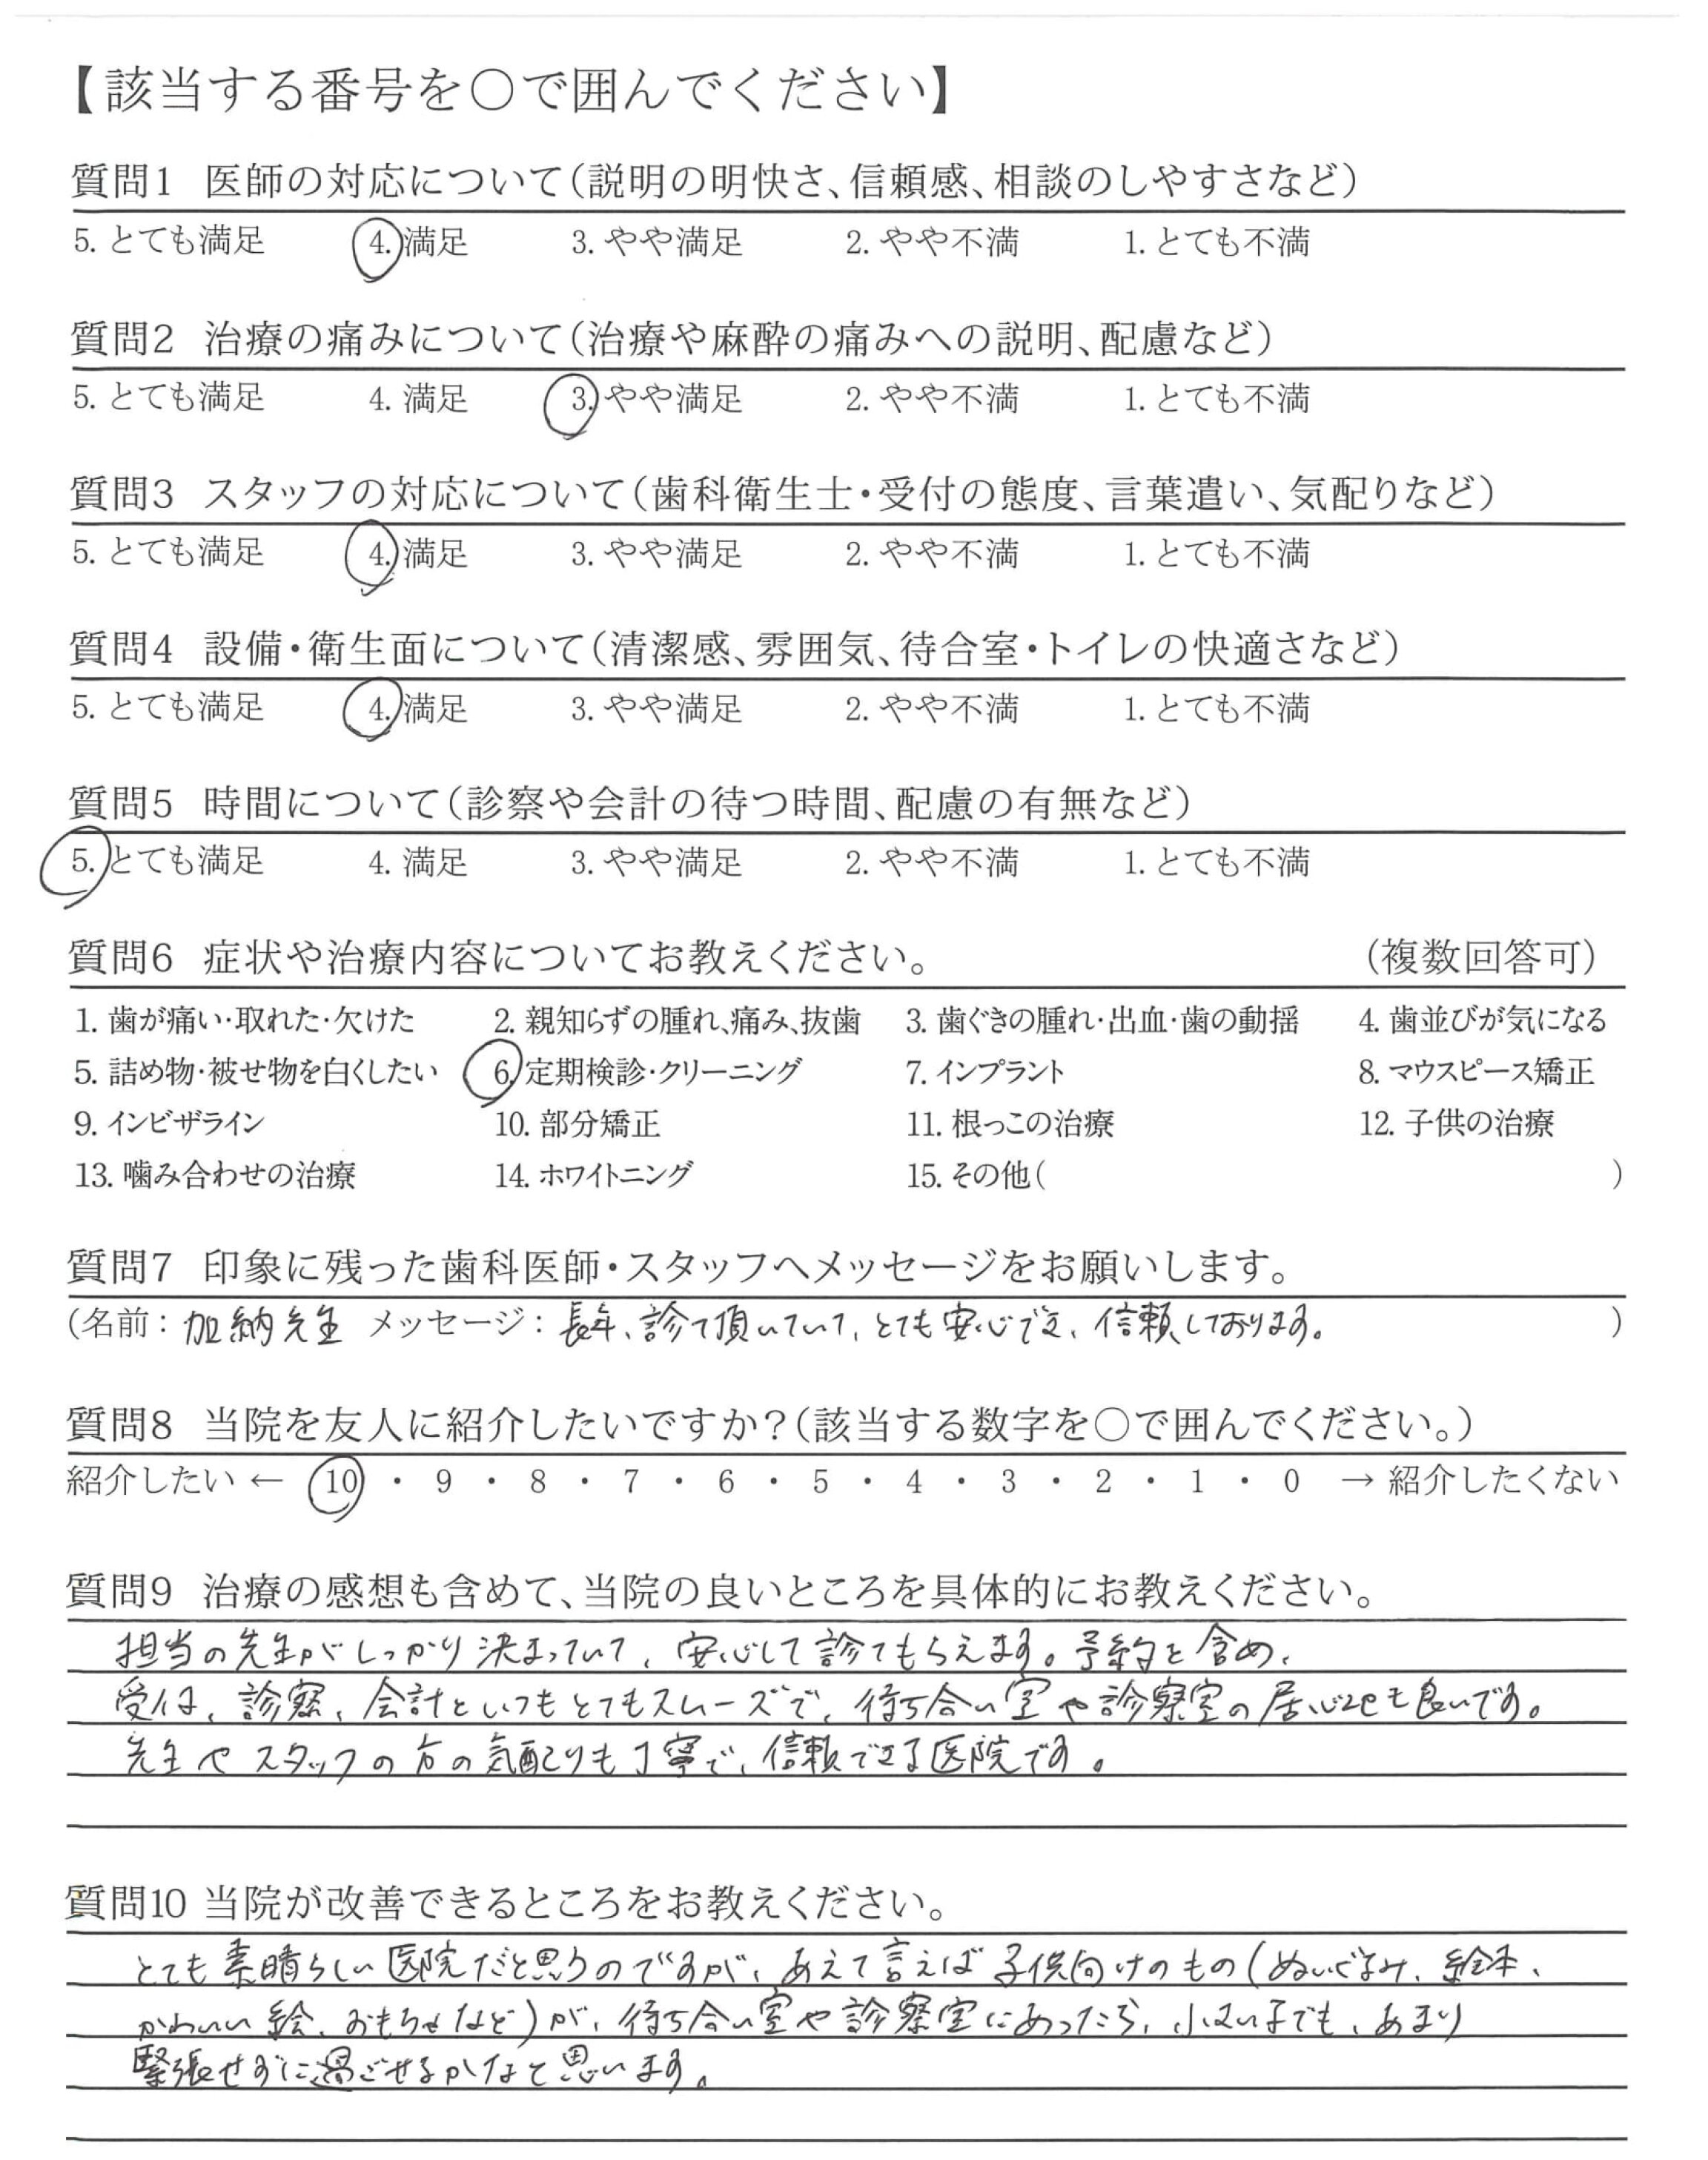 【該当する番号を○で囲んでください】
質問1 医師の対応について（説明の明快さ、信頼感、相談のしやすさなど）
5. とても満足 4. 満足 3. やや満足 2. やや不満 1. とても不満
質問2 治療の痛みについて（治療や麻酔の痛みへの説明、配慮など）
5. とても満足 4. 満足 3. やや満足 2. やや不満 1. とても不満
質問3 スタッフの対応について（歯科衛生士・受付の態度、言葉遣い、気配りなど）
5. とても満足 4. 満足 3. やや満足 2. やや不満 1. とても不満
質問4 設備・衛生面について（清潔感、雰囲気、待合室・トイレの快適さなど）
5. とても満足 4. 満足 3. やや満足 2. やや不満 1. とても不満
質問5 時間について（診察や会計の待つ時間、配慮の有無など）
5. とても満足 4. 満足 3. やや満足 2. やや不満 1. とても不満
質問6 症状や治療内容についてお教えください。 （複数回答可）
1. 歯が痛い・取れた・欠けた 2. 親知らずの腫れ、痛み、抜歯 3. 歯ぐきの腫れ・出血・歯の動揺 4. 歯並びが気になる
5. 詰め物・被せ物を白くしたい 6. 定期検診・クリーニング 7. インプラント 8. マウスピース矯正
9. インビザライン 10. 部分矯正 11. 根っこの治療 12. 子供の治療
13. 噛み合わせの治療 14. ホワイトニング 15. その他（ ）
質問7 印象に残った歯科医師・スタッフへメッセージをお願いします。
（名前：加納先生 メッセージ：長年、診て頂いていて、とても安心でき、信頼しております。 ）
質問8 当院を友人に紹介したいですか？（該当する数字を○で囲んでください。）
紹介したい ← 10 ・ 9 ・ 8 ・ 7 ・ 6 ・ 5 ・ 4 ・ 3 ・ 2 ・ 1 ・ 0 → 紹介したくない
質問9 治療の感想も含めて、当院の良いところを具体的にお教えください。
担当の先生がしっかり決まっていて、安心して診てもらえます。予約を含め、
受付、診察、会計といつもとてもスムーズで、待ち合い室や診察室の居心地も良いです。
先生やスタッフの方の気配りも丁寧で、信頼できる医院です。
質問10 当院が改善できるところをお教えください。
とても素晴らしい医院だと思うのですが、あえて言えば子供向けのもの（ぬいぐるみ、絵本、
かわいい絵、おもちゃなど）が、待ち合い室や診察室にあったら、小さい子でも、あまり
緊張せずに過ごせるかなと思います。